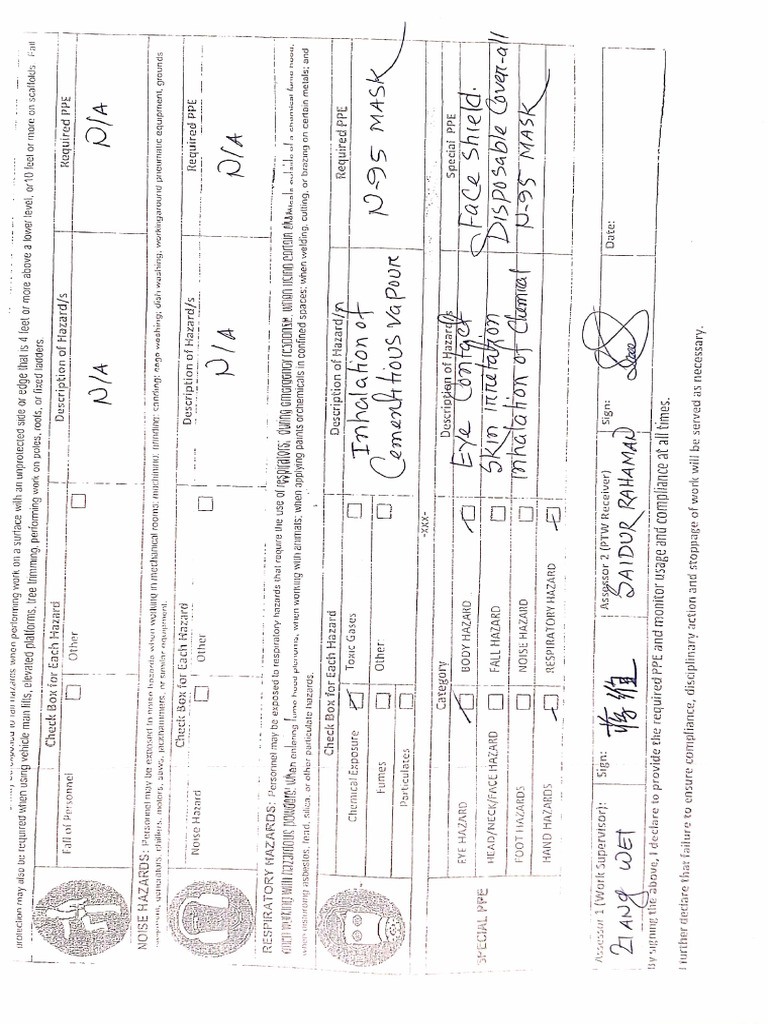 protection may also be required when using vehicle man lifts, elevated platforms, tree trimming, performing work on poles, roofs, or fixed ladders.
Check Box for Each Hazard
Description of Hazard/s
Required PPE
Fall of Personnel
Other
N/A
N/A
NOISE HAZARDS: Personnel may be exposed to noise hazards when working in mechanical rooms; machining; grinding; sanding; cage washing; dish washing; working around pneumatic equipment, grounds
equipment, generators, chillers, motors, saws, jackhammers, or similar equipment.
Check Box for Each Hazard
Description of Hazard/s
Required PPE
Noise Hazard
Other
N/A
N/A
RESPIRATORY HAZARDS: Personnel may be exposed to respiratory hazards that require the use of respirators: during emergency response, when using certain chemicals outside of a chemical fume hood,
when working with hazardous powders; when entering fume hood plenums; when working with animals; when applying paints or chemicals in confined spaces; when welding, cutting, or brazing on certain metals; and
when disturbing asbestos, lead, silica, or other particulate hazards.
Check Box for Each Hazard
Description of Hazard/s
Required PPE
Chemical Exposure
Toxic Gases
Inhalation of
Fumes
Other:
Cementitious vapour
N-95 MASK
Particulates
-XXX-
SPECIAL PPE
Category
Description of Hazard/s
Special PPE
EYE HAZARD
BODY HAZARD
Eye contact
Face Shield.
HEAD/NECK/FACE HAZARD
FALL HAZARD
Skin irretation
Disposable Cover-all
FOOT HAZARDS
NOISE HAZARD
Inhalation of Chemical
N-95 MASK
HAND HAZARDS
RESPIRATORY HAZARD
Assessor 1 (Work Supervisor):
Sign:
Assessor 2 (PTW Receiver)
Sign:
Date:
WEI
SAIDUR RAHAMAN
By signing the above, I declare to provide the required PPE and monitor usage and compliance at all times.
I further declare that failure to ensure compliance, disciplinary action and stoppage of work will be served as necessary.